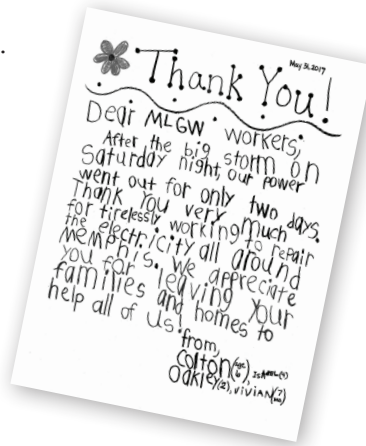 May 31, 2017
Thank You!
Dear MLGW workers,
After the big storm on
Saturday night, our power
went out for only two days.
Thank you very much
for tirelessly working to repair
the electricity all around
Memphis. We appreciate
you for leaving your
families and homes to
help all of us!
from,
Colton (age 6), Isabel (4)
Oakley (2), Vivian